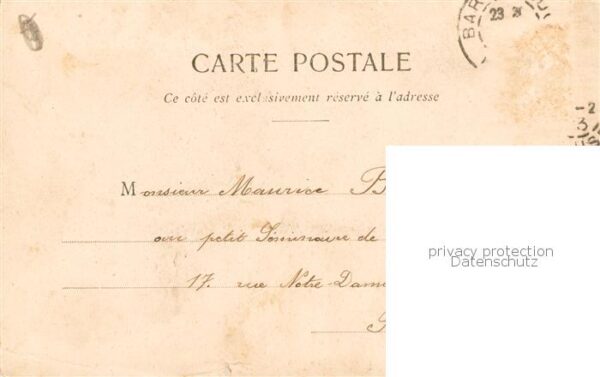 BAR
23
CARTE POSTALE
Ce côté est exclusivement réservé à l'adresse
-2
3
Monsieur Maurice B
au petit Séminaire de
17. rue Notre-Dame
privacy protection
Datenschutz